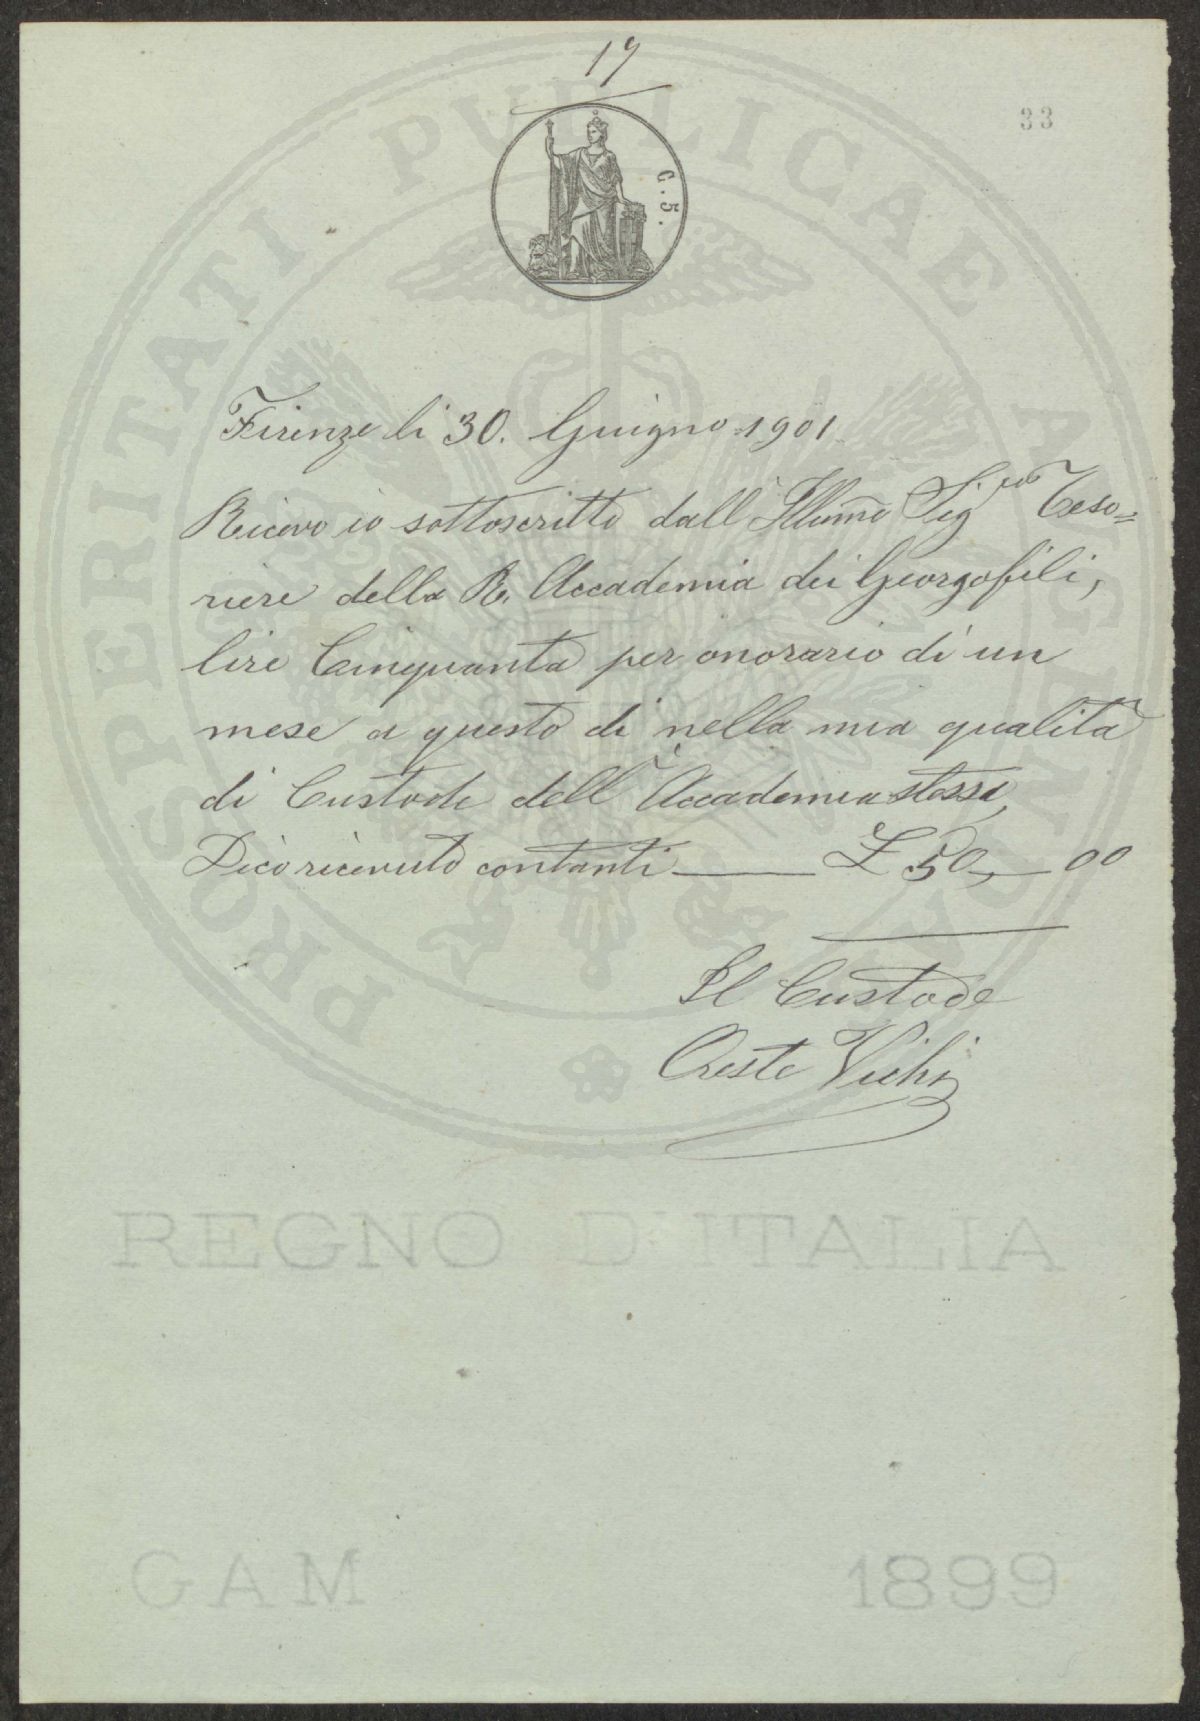 19
33
C. 5.
Firenze li 30. Giugno 1901
Ricevo io sottoscritto dall'Illumo Sigre Teso=
riere della R. Accademia dei Georgofili,
lire Cinquanta per onorario di un
mese a questo dì nella mia qualità
di Custode dell'Accademia stessa,
Dico ricevuto contanti — £ 50,—00
Il Custode
Oreste Vichi
PROSPERITATI PUBLICAE AUGENDAE
REGNO D'ITALIA
GAM 1899